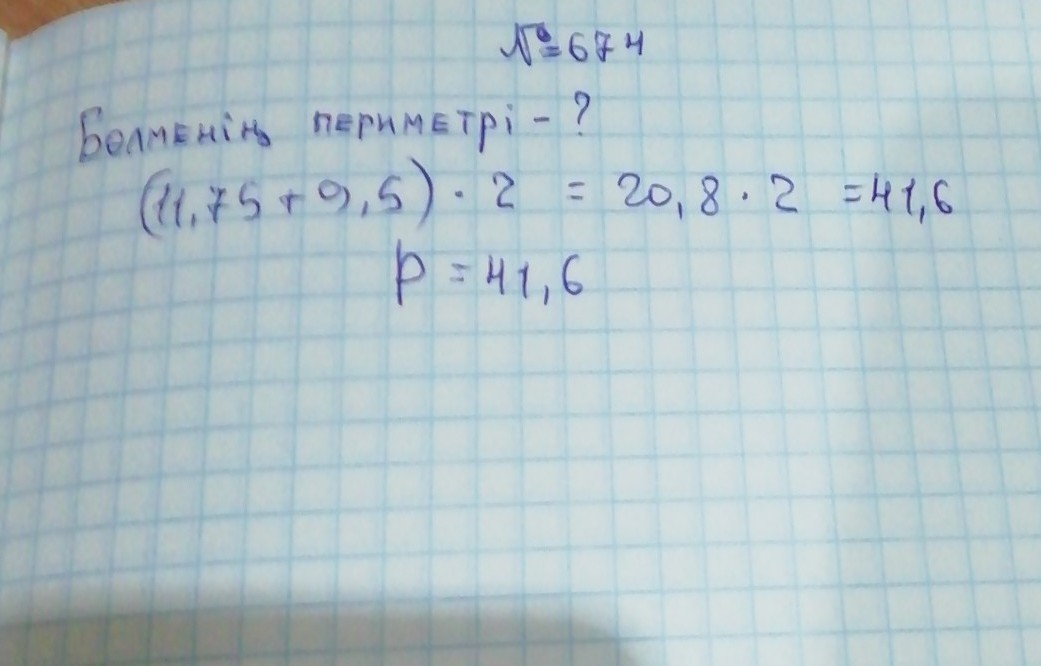 №674
Бөлменің периметрі - ?
(11,75 + 9,5) · 2 = 20,8 · 2 = 41,6
P = 41,6